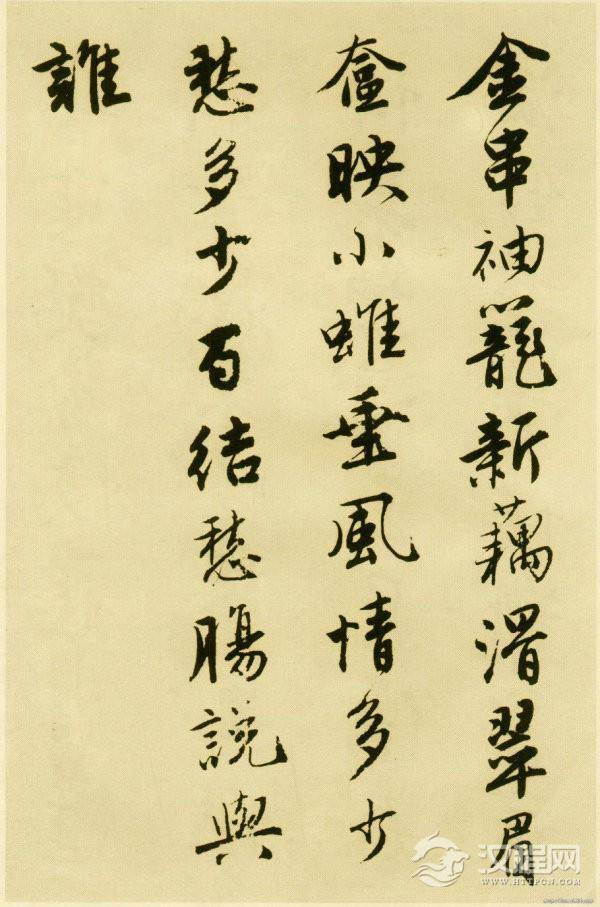 金串袖籠新藕滑翠眉
奩映小蜼垂風情多少
愁多少百結愁腸說與
誰
汉程网
WWW.HTTPCN.COM